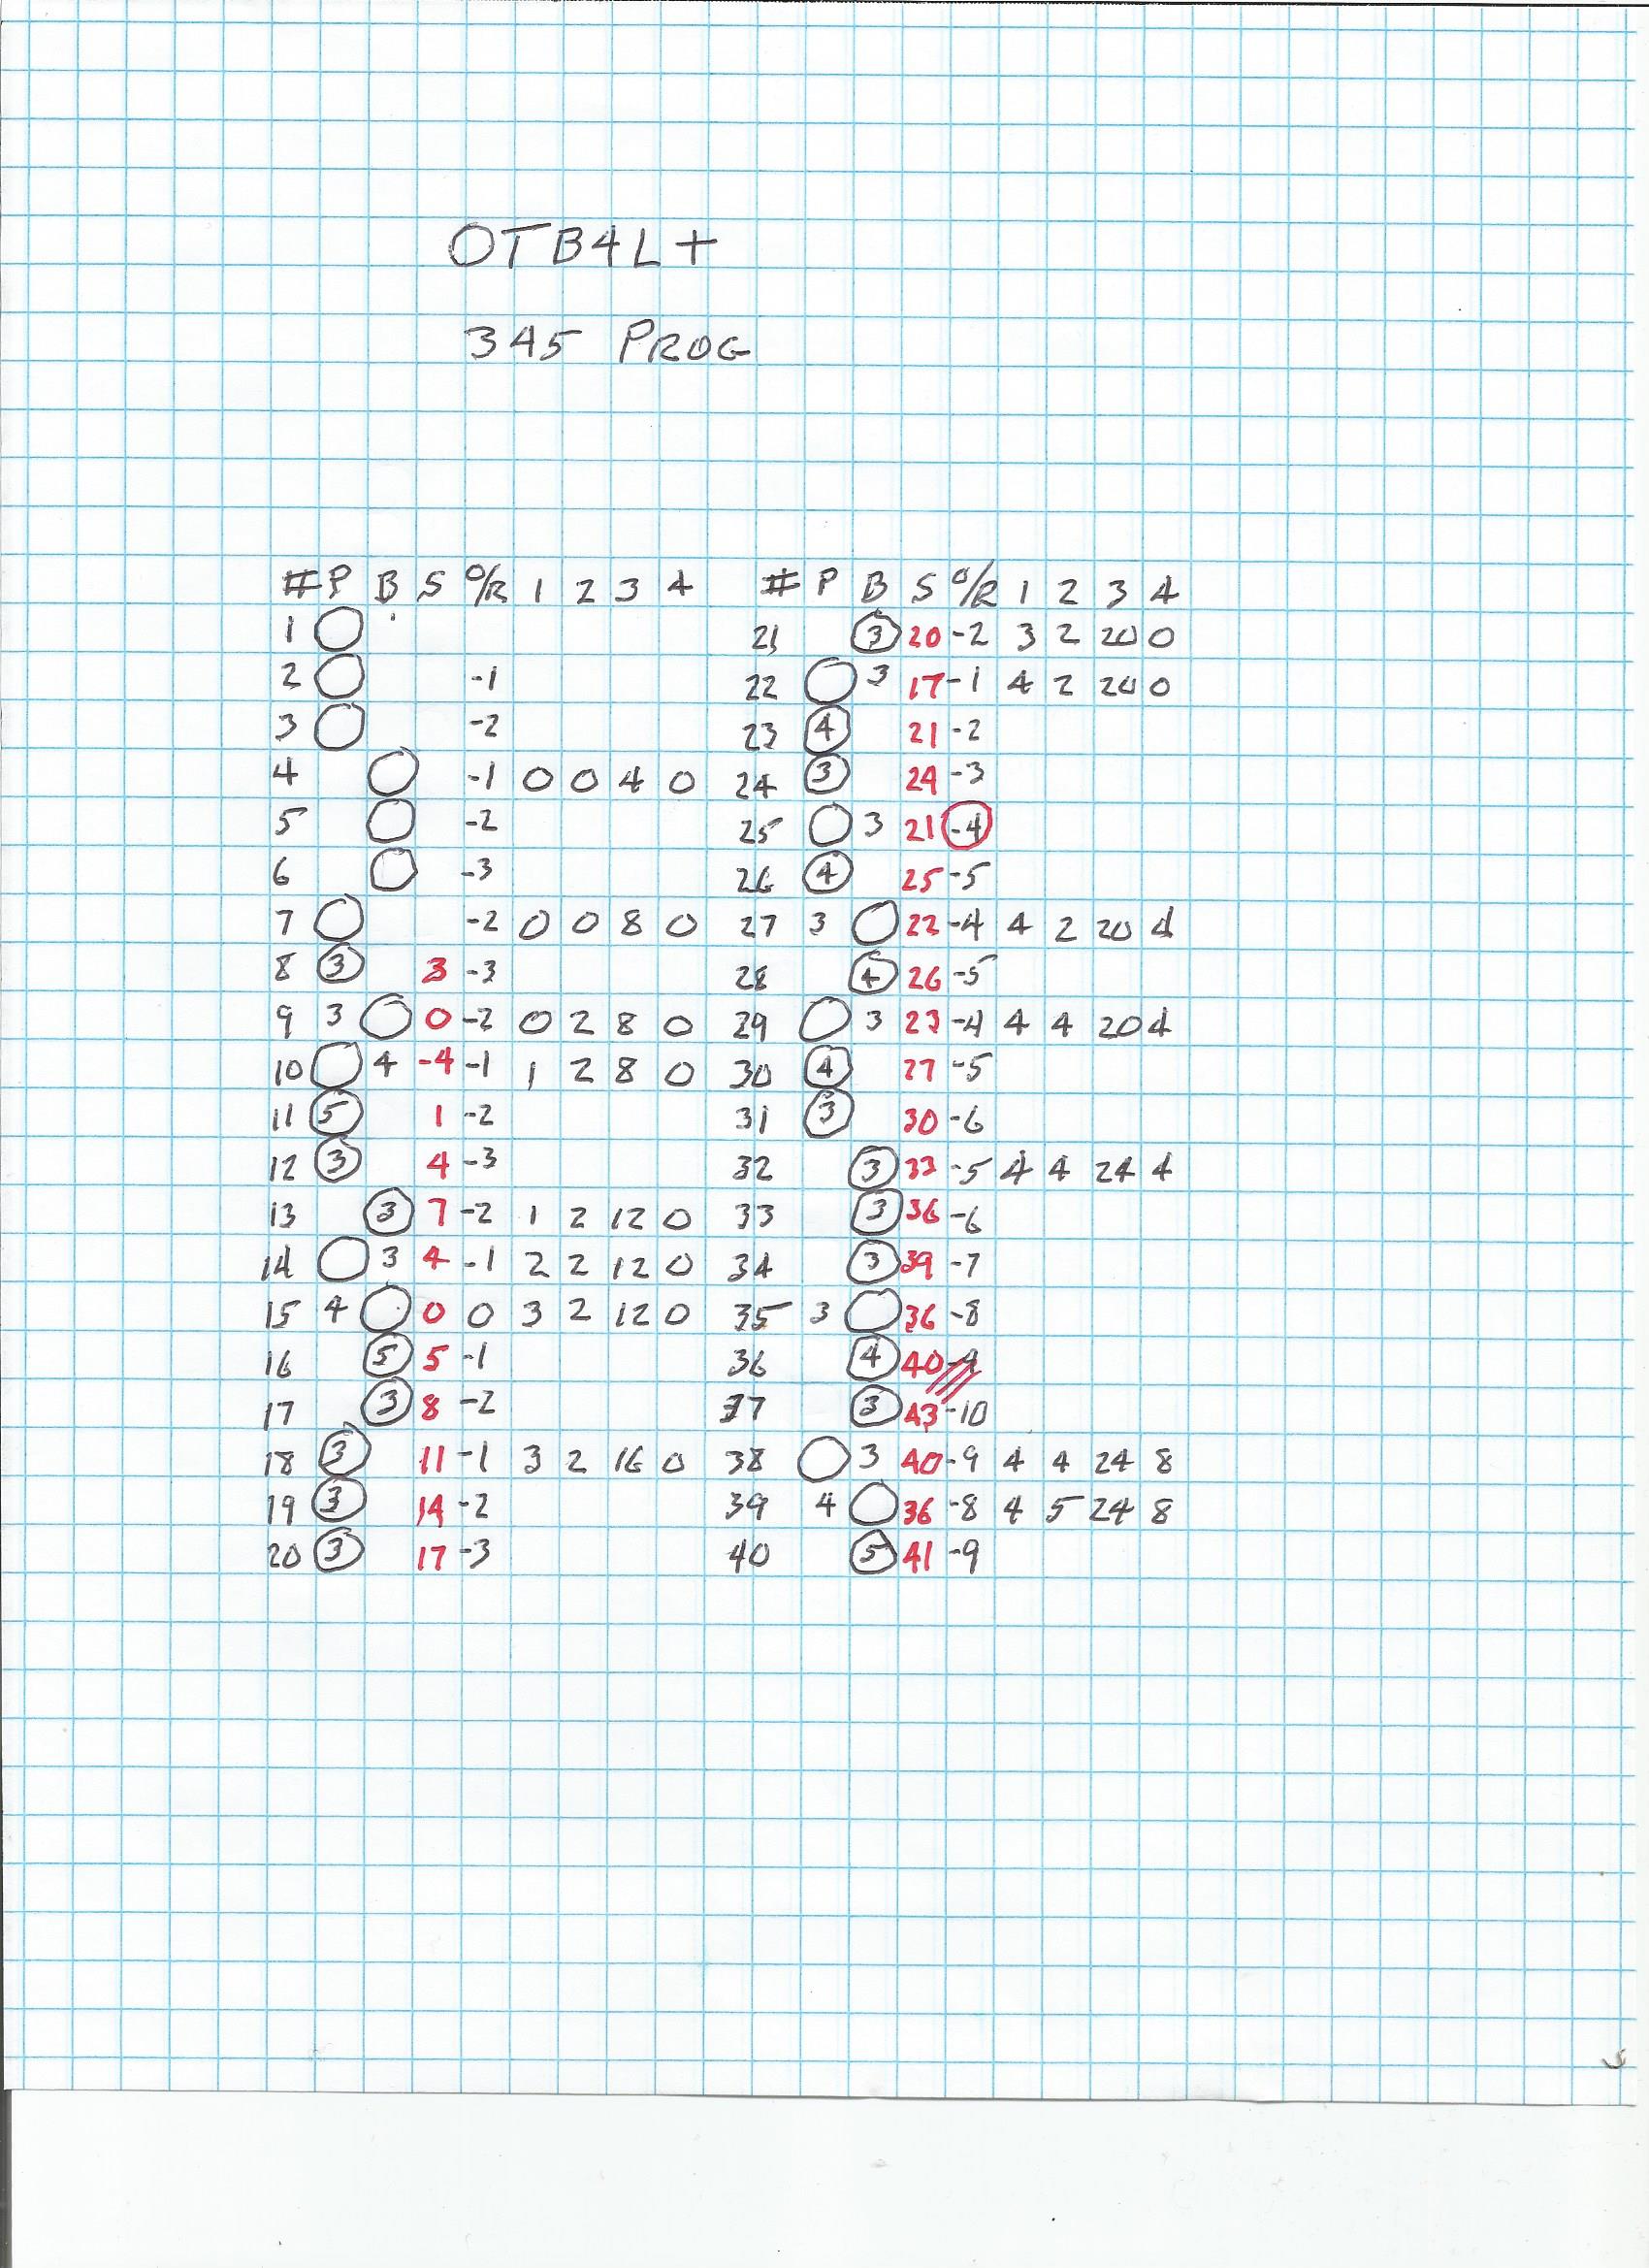 OTB4L+
345 PROG
# P B S O/R 1 2 3 4 # P B S O/R 1 2 3 4
1 21 3 20 -2 3 2 20 0
2 -1 22 3 17 -1 4 2 20 0
3 -2 23 4 21 -2
4 -1 0 0 4 0 24 3 24 -3
5 -2 25 3 21 -4
6 -3 26 4 25 -5
7 -2 0 0 8 0 27 3 22 -4 4 2 20 4
8 3 3 -3 28 4 26 -5
9 3 0 -2 0 2 8 0 29 3 23 -4 4 4 20 4
10 4 -4 -1 1 2 8 0 30 4 27 -5
11 5 1 -2 31 3 30 -6
12 3 4 -3 32 3 33 -5 4 4 24 4
13 3 7 -2 1 2 12 0 33 3 36 -6
14 3 4 -1 2 2 12 0 34 3 39 -7
15 4 0 0 3 2 12 0 35 3 36 -8
16 5 5 -1 36 4 40 -9
17 3 8 -2 37 3 43 -10
18 3 11 -1 3 2 16 0 38 3 40 -9 4 4 24 8
19 3 14 -2 39 4 36 -8 4 5 24 8
20 3 17 -3 40 5 41 -9